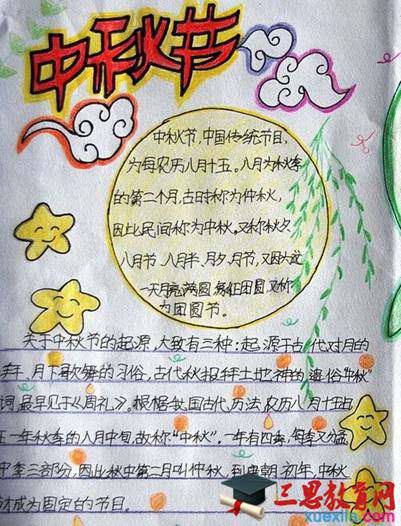 中秋节
中秋节,中国传统节目,
为每农历八月十五。八月为秋季
的第二个月,古时称为仲秋,
因此民间称为中秋。又称秋夕、
八月节、八月半、月夕、月节,又因为这
一天月亮满圆,象征团圆,又称
为团圆节。
关于中秋节的起源,大致有三种:起源于古代对月的
月下歌舞的习俗,古代秋报拜土地神的遗俗"中秋"
词,最早见于《周礼》。根据我国古代历法,农历八月十五日
在一年秋季的八月中旬,故称"中秋"。一年有四季,每季又分孟
中季三部分,因此秋中第二月叫仲秋,到唐朝初年,中秋
成为固定的节目。
三思教育网
xuexila.com